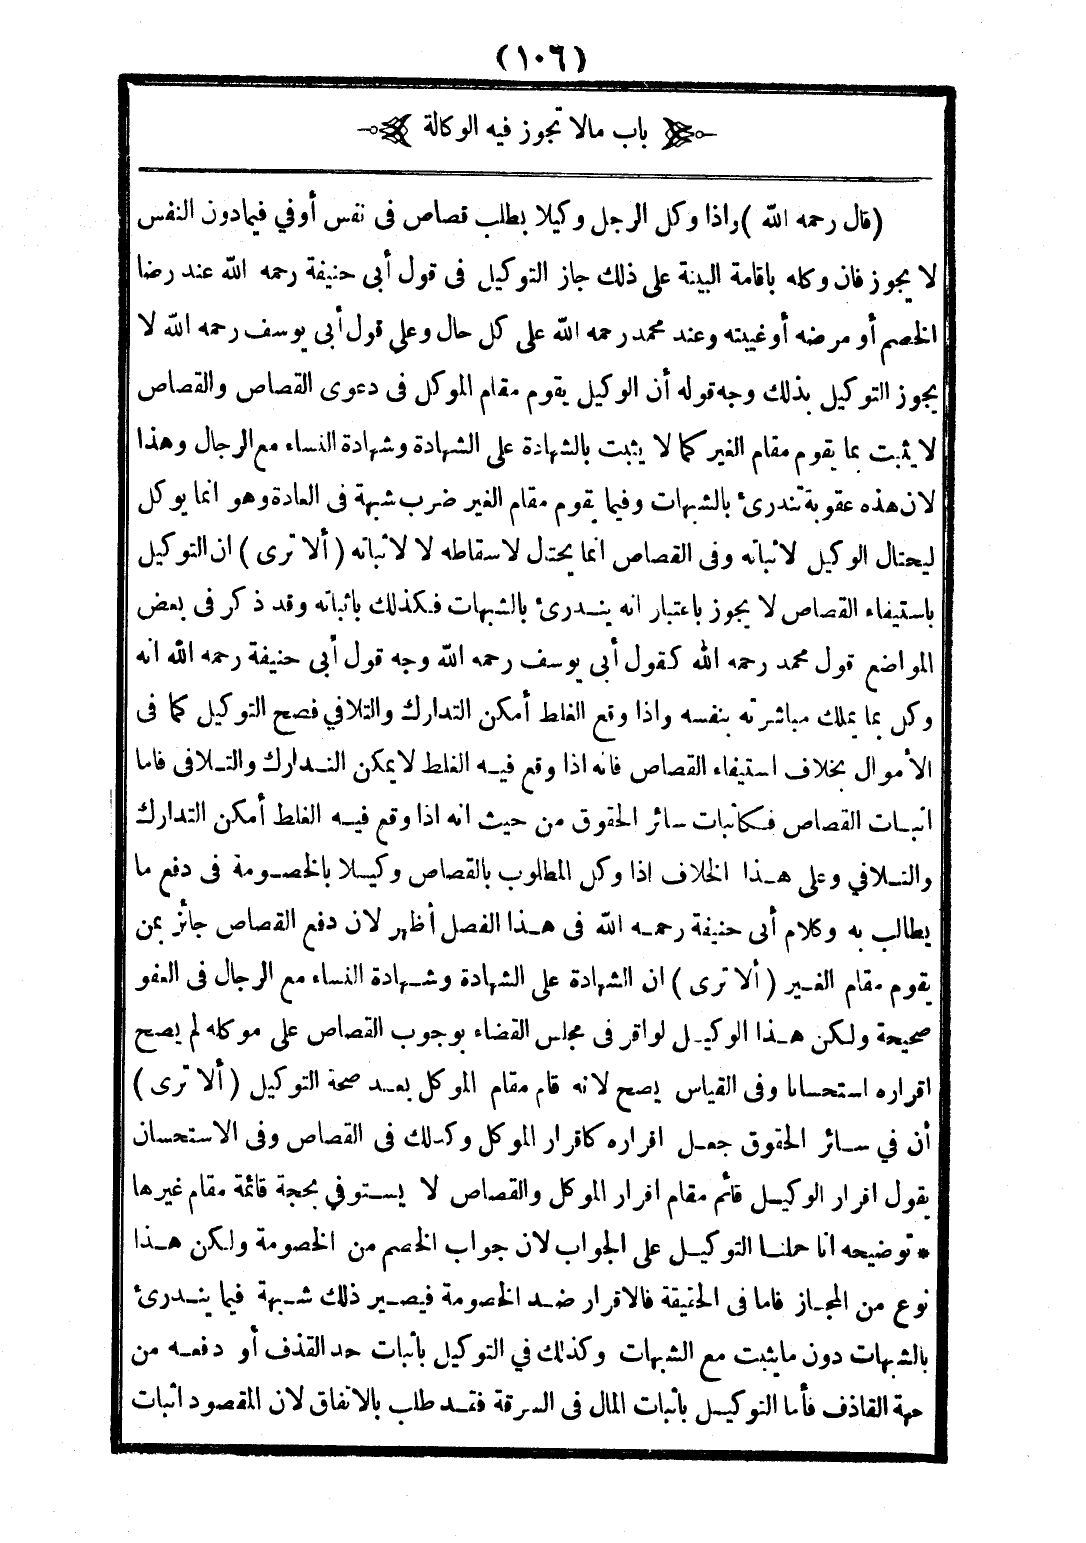 (١٠٦)
باب مالا تجوز فيه الوكالة
(قال رحمه الله) واذا وكل الرجل وكيلا بطلب قصاص فى نفس أوفي فيمادون النفس
لا يجوز فان وكله باقامة البينة على ذلك جاز التوكيل فى قول أبى حنيفة رحمه الله عند رضا
الخصم أو مرضه أوغيبته وعند محمد رحمه الله على كل حال وعلي قول أبى يوسف رحمه الله لا
يجوز التوكيل بذلك وجه قوله أن الوكيل يقوم مقام الموكل فى دعوى القصاص والقصاص
لا يثبت بما يقوم مقام الغير كما لا يثبت بالشهادة على الشهادة وشهادة النساء مع الرجال وهذا
لان هذه عقوبة تندرئ بالشبهات وفيما يقوم مقام الغير ضرب شبهة فى العادة وهو انما يوكل
ليحتال الوكيل لاثباته وفى القصاص انما يحتال لاسقاطه لا لاثباته (ألا ترى) ان التوكيل
باستيفاء القصاص لا يجوز باعتبار انه يندرئ بالشبهات فكذلك باثباته وقد ذكر فى بعض
المواضع قول محمد رحمه الله كقول أبى يوسف رحمه الله وجه قول أبى حنيفة رحمه الله انه
وكل بما يملك مباشرته بنفسه واذا وقع الغلط أمكن التدارك والتلافي فصح التوكيل كما فى
الأموال بخلاف استيفاء القصاص فانه اذا وقع فيه الغلط لايمكن التدارك والتلافى فاما
اثبات القصاص فكاثبات سائر الحقوق من حيث انه اذا وقع فيه الغلط أمكن التدارك
والتلافي وعلى هذا الخلاف اذا وكل المطلوب بالقصاص وكيلا بالخصومة فى دفع ما
يطالب به وكلام أبى حنيفة رحمه الله فى هذا الفصل أظهر لان دفع القصاص جائز بمن
يقوم مقام الغير (ألا ترى) ان الشهادة على الشهادة وشهادة النساء مع الرجال فى العفو
صحيحة ولكن هذا الوكيل لواقر فى مجلس القضاء بوجوب القصاص على موكله لم يصح
اقراره استحسانا وفى القياس يصح لانه قام مقام الموكل بعد صحة التوكيل (ألا ترى)
أن في سائر الحقوق جعل اقراره كاقرار الموكل وكذلك فى القصاص وفى الاستحسان
يقول اقرار الوكيل قائم مقام اقرار الموكل والقصاص لا يستوفي بحجة قائمة مقام غيرها
* توضيحه انا حملنا التوكيل على الجواب لان جواب الخصم من الخصومة ولكن هذا
نوع من المجاز فاما فى الحقيقة فالاقرار ضد الخصومة فيصير ذلك شبهة فيما يندرئ
بالشبهات دون مايثبت مع الشبهات وكذلك في التوكيل باثبات حد القذف أو دفعه من
جهة القاذف فأما التوكيل باثبات المال فى السرقة فقد طلب بالاتفاق لان المقصود اثبات